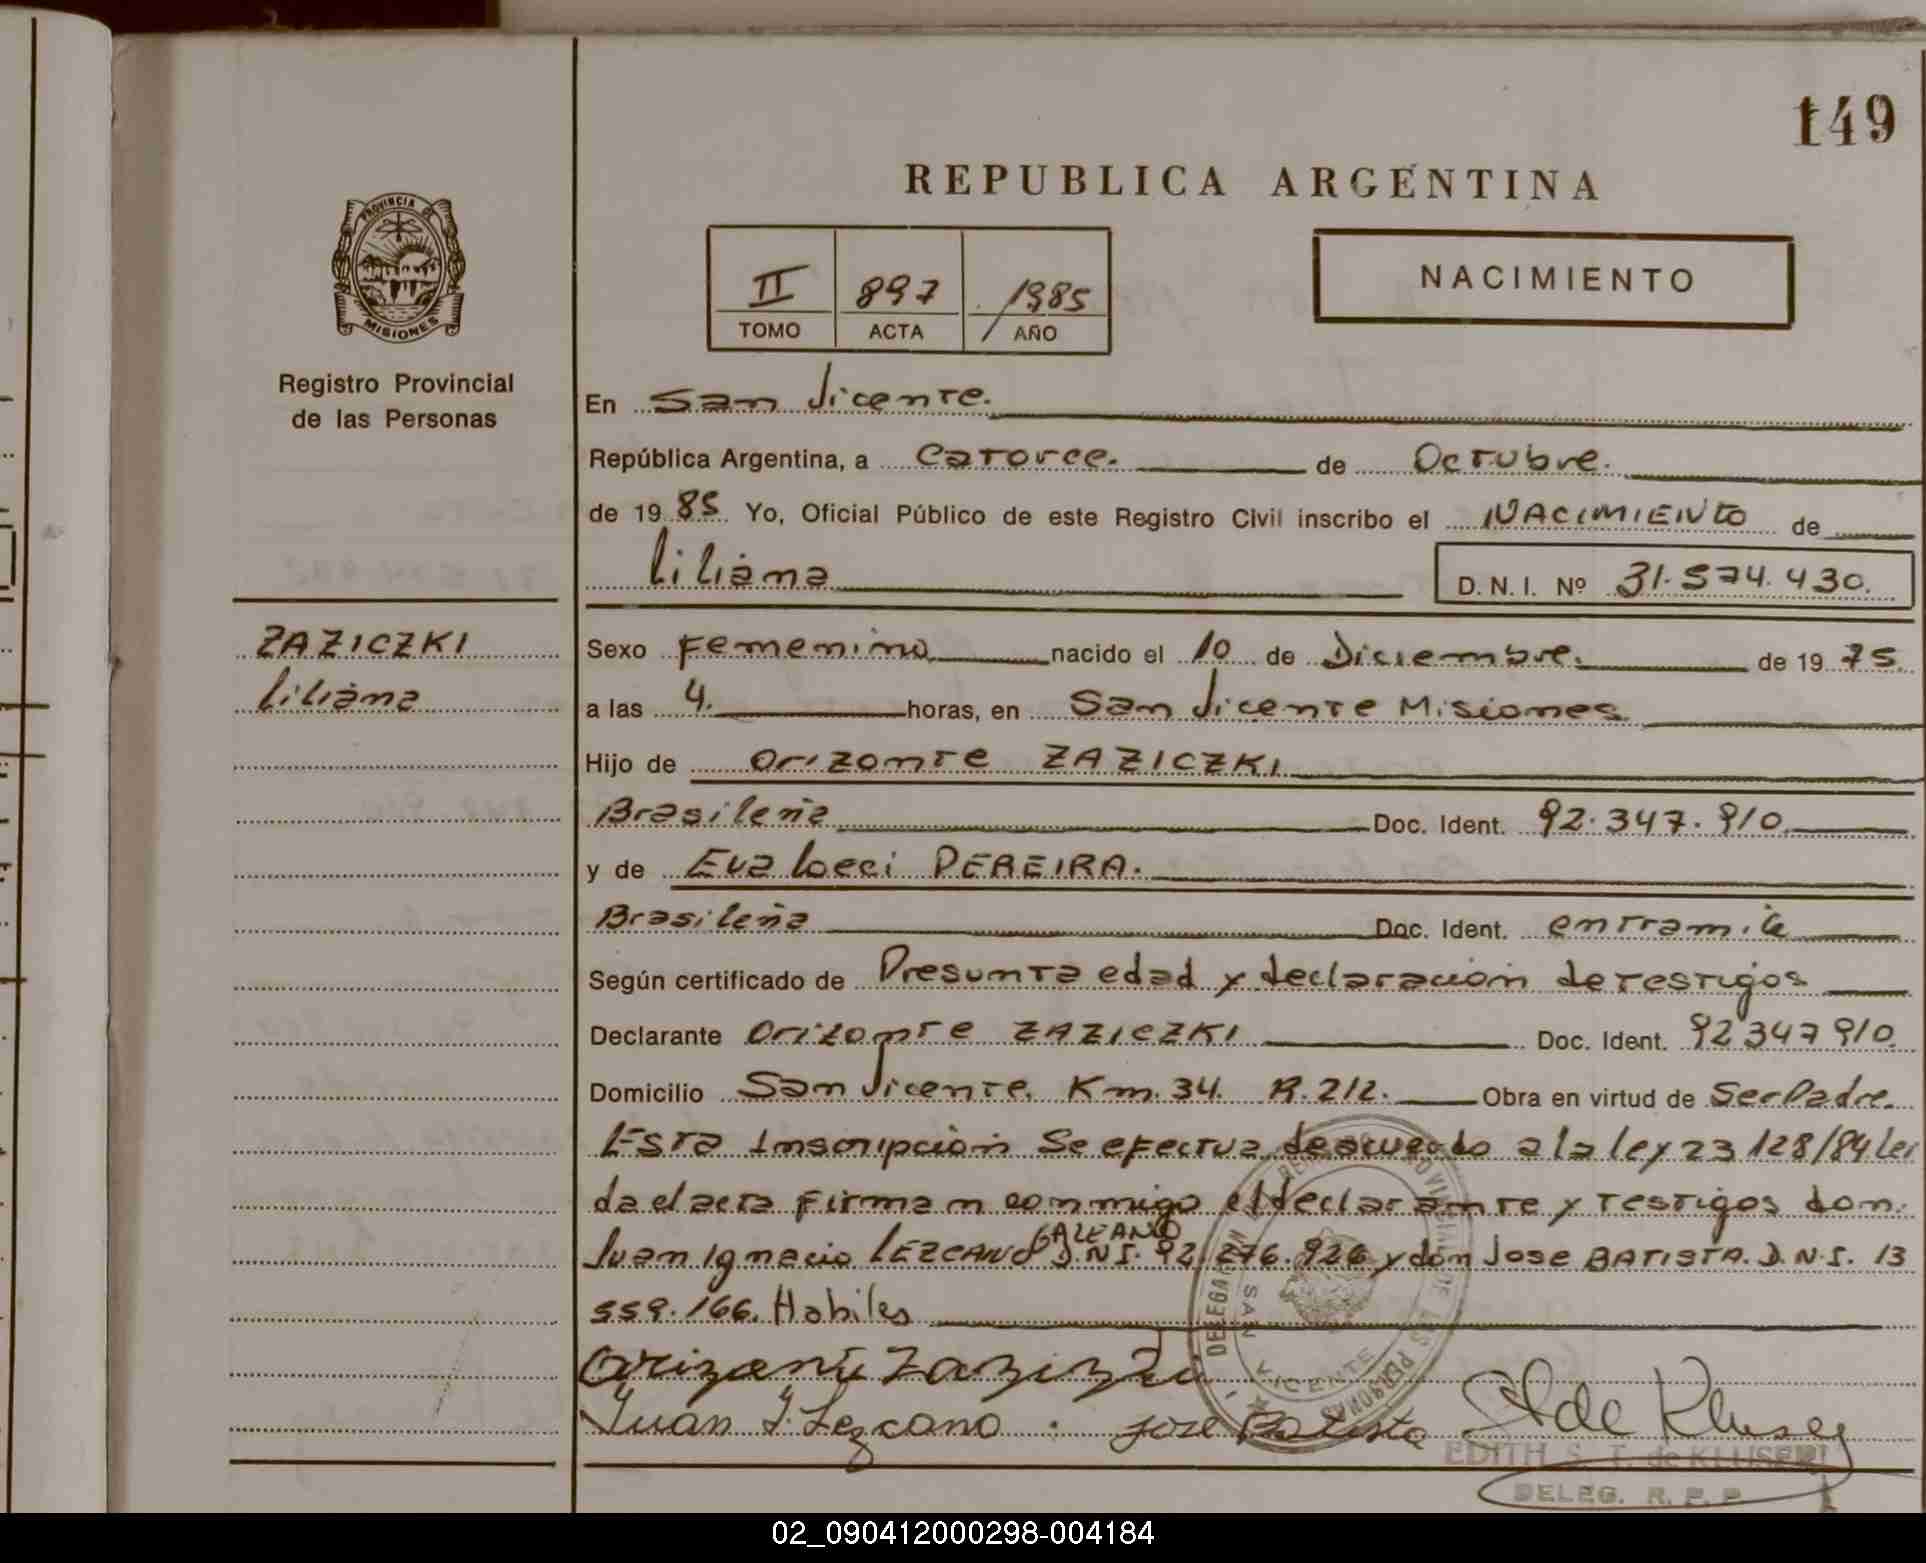 149
REPUBLICA ARGENTINA
PROVINCIA DE
MISIONES
II 897 1985
TOMO ACTA AÑO
NACIMIENTO
Registro Provincial
de las Personas
En San Vicente.
República Argentina, a Catorce. de Octubre.
de 19 85 Yo, Oficial Público de este Registro Civil inscribo el NACIMIENTO de
Liliana D. N. I. Nº 31.574.430.
ZAZICZKI
Liliana
Sexo Femenino nacido el 10 de Diciembre. de 19 75
a las 4. horas, en San Vicente Misiones
Hijo de Orizonte ZAZICZKI
Brasileña Doc. Ident. 92.347.910
y de Eva loeci PEREIRA.
Brasileña Doc. Ident. entramite
Según certificado de Presunta edad y declaración de testigos
Declarante Orizonte ZAZICZKI Doc. Ident. 92347910.
Domicilio San Vicente. Km. 34. R.212. Obra en virtud de Ser Padre.
Esta Inscripción Se efectua deacuerdo a la ley 23128/84 Lei
da el acta Firman conmigo el declarante y testigos don.
Juan Ignacio LEZCANO GALEANO D.N.I. 92.276.926 y don Jose BATISTA. D.N.I. 13
559.166. Habiles
Juan I. Lezcano . jose Batista
DELEGACION SAN VICENTE
EDITH S. T. de KLUSENER
DELEG. R. P. P.
02_090412000298-004184